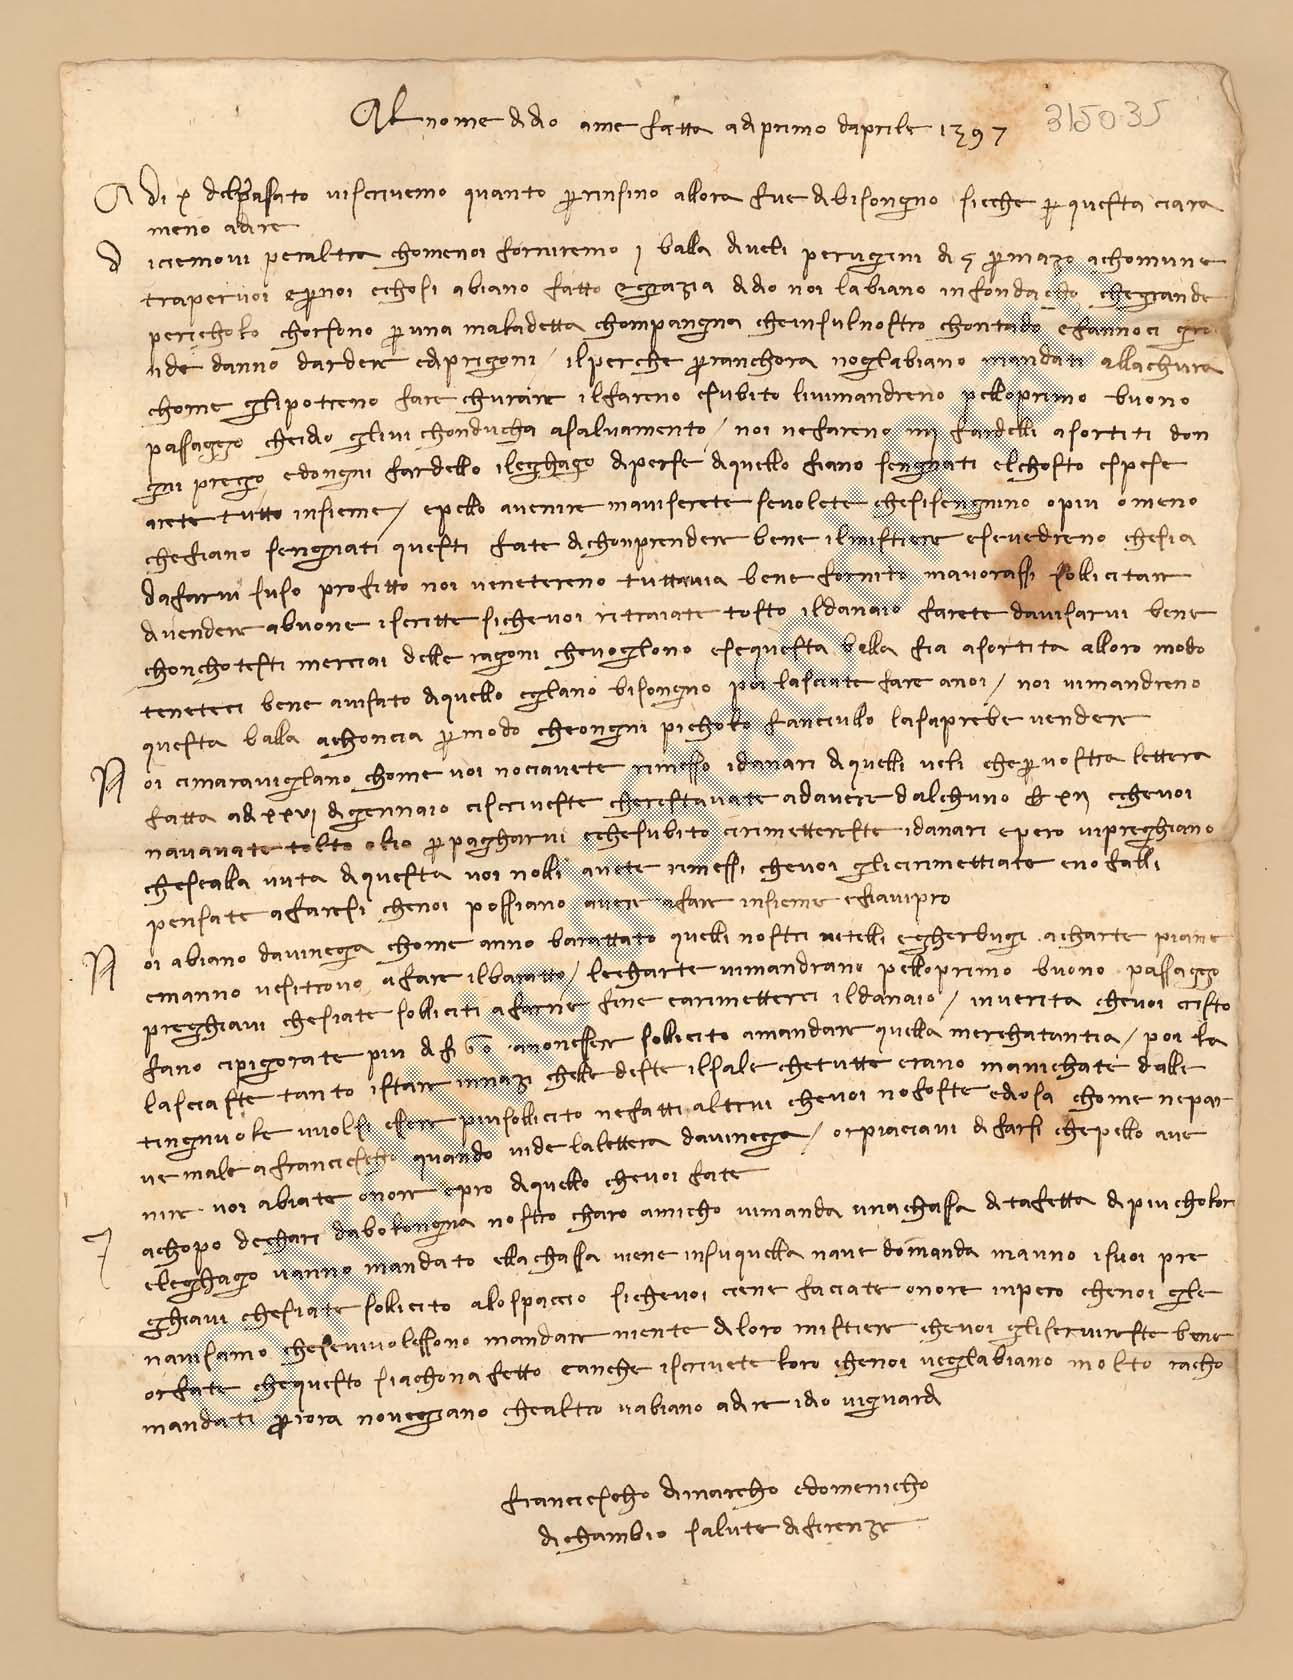 Al nome di dio ame fatta adi primo daprile 1397
315035
A di x del pasato viscrivemo quanto prinsino allora fue dibisongno sicche p questa ciara
meno adire
d iciemovi peraltra chomenoi forniremo j balla diveli perugini di 5 p mazo achomune
trapervoi epnoi echosi abiano fatto egrazia didio noi labiano infondacho chegrande
pericholo chorsono p una maladetta chompangna cheinsulnostro chontado efannoci gra
nde danno dardere edaprigoni / ilperche pranchora noglabiano mandati allachura
chome glipotreno fare churare ilfareno esubito livimandreno pelloprimo buono
passaggo cheidio glivi chonducha asalvamento / noi nefareno iiij fardelli asortiti don
gni preggo edongni fardello ileghago diperse diquello fiano sengnati elchosto espese
arete tutto insieme / epello avenire maviserete sevolete chesisengnino opiu omeno
chefiano sengnati questi fate dichonprendere bene ilmistiere esevedreno chesia
dafarvi suso profitto noi venetereno tuttavia bene fornito mavorassi sollicitare
divendere abuone iscritte sichevoi ritraiate tosto ildanaio farete davisarvi bene
chonchotesti merciai delle ragoni chevoglono esequesta balla fia asortita alloro modo
teneteci bene avisato diquello eglano bisongno poi lasciate fare anoi / noi vimandreno
questa balla achoncia p modo cheongni picholo fanciullo lasaprebe vendere
N oi cimaraviglano chome voi nociavete rimesso idanari diquelli veli chepvostra lettera
fatta adi xxvj digennaio ciscriveste cherestavate adavere dalchuno xij echevoi
navavate tolto olio p pagharvi echesubito cirimettereste idanari epero vipreghiano
chesealla vuta diquesta voi nolli avete rimessi chevoi glicirimettiate enofalli
pensate afaresi chenoi possiano avere afare insieme efiavipro
N oi abiano davinega chome anno barattato quelli nostri vitelli egherbugi acharte piane
emanno vesitrovo afare ilbaratto / lecharte vimandrano pelloprimo buono passaggo
preghiavi chesiate solliciti afarne fine earimetterci ildanaio / inverita chevoi cisto
fano cipigorate piu di f 60 anonesser sollicito amandare quella merchatantia / poi la
lasciaste tanto istare innazi chelle deste ilsale chetutte erano manichate dalle
tingnuole vuolsi essere piusollicito nefatti altrui chevoi nofoste edidisa chome nepar
ve male afranciescho quando vide lalettera davinega / orpiaciavi difarsi chepello ave
nire voi abiate onore epro diquello chevoi fate
J achopo dechari dabolongna nostro charo amicho vimanda unachassa ditafetta dipiucholor
eleghago vanno mandato ellachassa viene insuquella nave domanda manno isuoi pre
ghiavi chesiate sollicito alospaccio sichevoi ciene faciate onore inpero chenoi gle
navisamo chesevivolessono mandare niente diloro mistiere chevoi gliservireste bene
orfate chequesto siachonafetto eanche iscrivete loro chenoi veglabiano molto racho
mandati priora noveggano chealtro vabiano adire idio viguardi
franciescho dimarcho edomenicho
dichambio salute difirenze